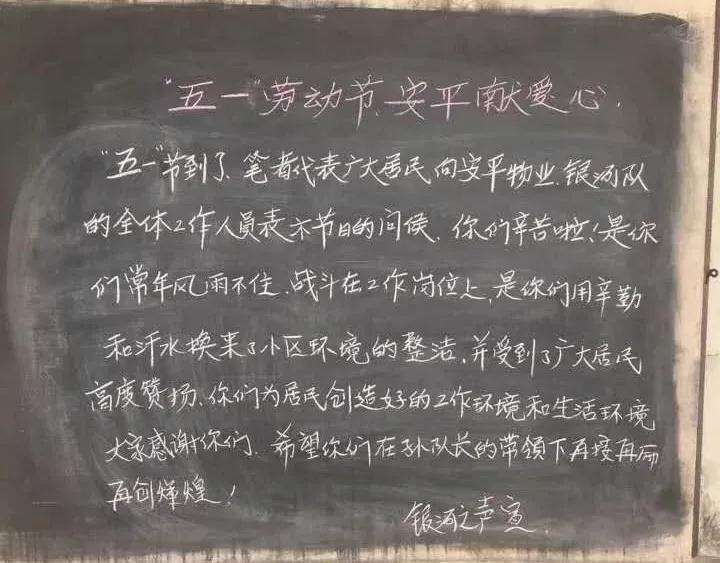 “五一”劳动节、安平献爱心.
“五一”节到了、笔者代表广大居民向安平物业、银河队
的全体工作人员表示节日的问侯、你们辛苦啦！是你
们常年风雨不住、战斗在工作岗位上、是你们用辛勤
和汗水换来了小区环境的整洁、并受到了广大居民
高度赞扬、你们为居民创造好的工作环境和生活环境
大家感谢你们、希望你们在孙队长的带领下再接再厉
再创辉煌！
银河之声宣.